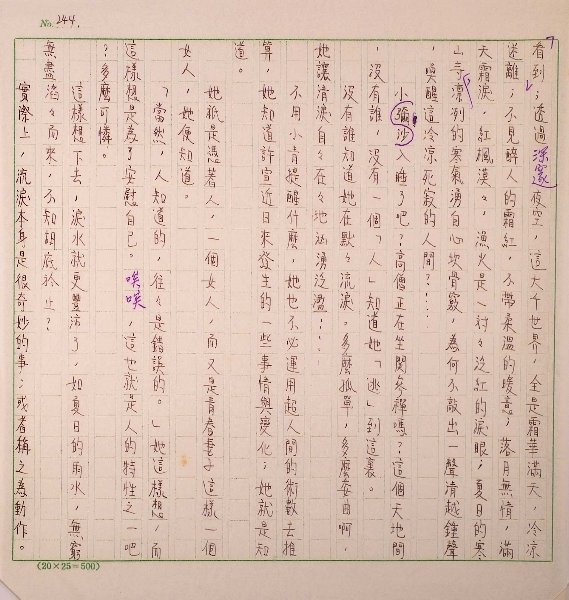 No. 244.
看到;透過深邃夜空,這大千世界,全是霜華滿天,冷涼
迷離;不見醉人的霜紅,不帶柔溫的暖意;落月無情,滿
天霜淚,紅楓漠々,漁火是一對々泛紅的淚眼;夏日的寒
山寺凜冽的寒氣湧自心坎骨竅,為何不敲出一聲清越鐘聲
,喚醒這冷凉死寂的人間?⋯⋯
小彌沙入睡了吧?高僧正在坐關參禪嗎?這個天地間
,沒有誰,沒有一個「人」知道她「逃」到這裏。
沒有誰知道她在默々流淚。多麼孤單,多麼委曲啊,
她讓清淚自々在々地洶湧泛濫⋯⋯
不用小青提醒什麼,她也不必運用超人間的術數去推
算,她知道許宣近日來發生的一些事情與變化;她就是知
道。
她祇是憑著人,一個女人,而又是青春妻子這樣一個
女人,她便知道。
「當然,人知道的,往々是錯誤的。」她這樣想,而
這樣想是為了安慰自己。唉唉,這也就是人的特性之一吧
?多麼可憐。
這樣想下去,淚水就更豐沛了,如夏日的雨水,無窮
無盡滔々而來,不知胡底於止?
實際上,流淚本身是很奇妙的事;或者稱之為動作。
(20×25=500)